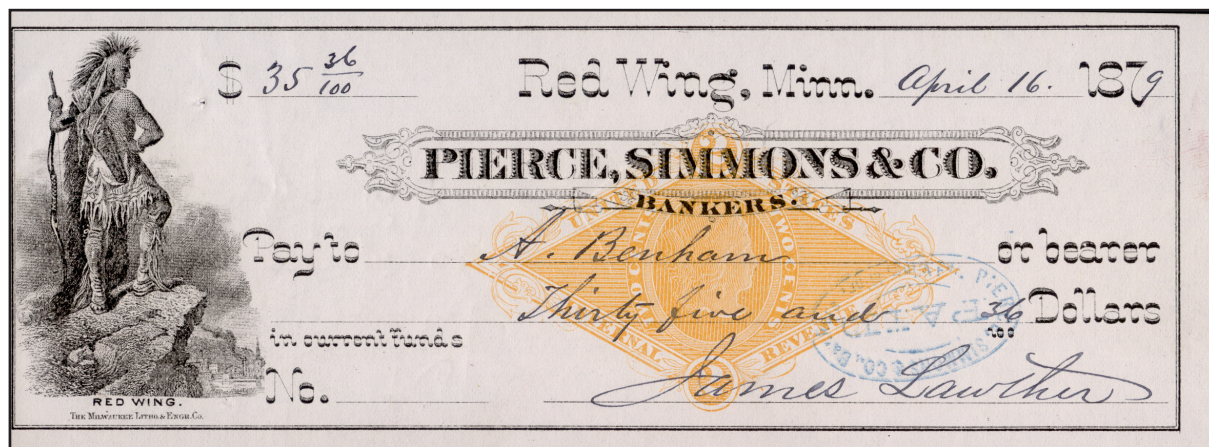 $ 35 36/100 Red Wing, Minn. April 16. 1879
PIERCE, SIMMONS & CO.
BANKERS.
UNITED STATES
TWO CENTS
Pay to A. Benham or bearer
Thirty five and 36/100 Dollars
in current funds
INTERNAL REVENUE
No. James Lawther
RED WING.
THE MILWAUKEE LITHO. & ENGR. CO.